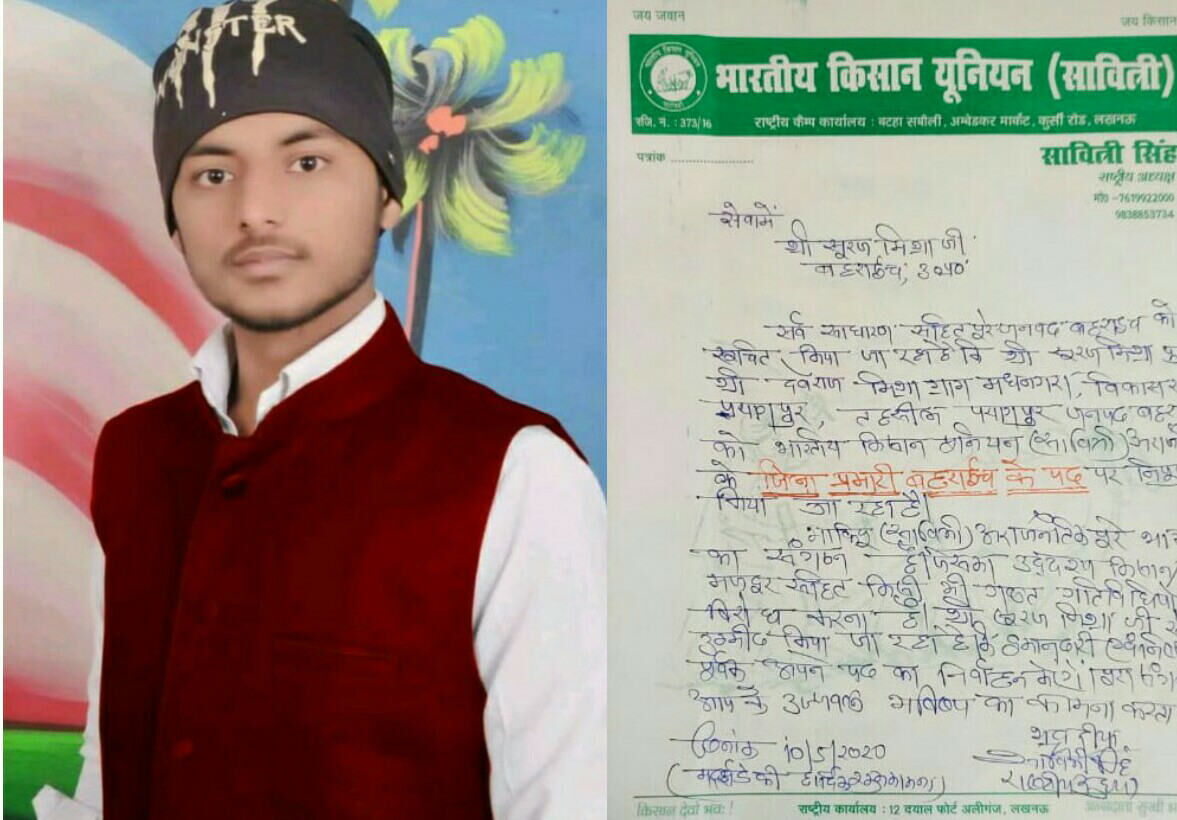 STER
जय जवान
जय किसान
भारतीय किसान यूनियन (सावित्री)
रजि. नं. : 373/16
राष्ट्रीय कैम्प कार्यालय : बटहा सबौली, अम्बेडकर मार्केट, कुर्सी रोड, लखनऊ
पत्रांक ....................
सावित्री सिंह
राष्ट्रीय अध्यक्ष
मो० -7619922000
9838853734
सेवामें
श्री सूरज मिश्रा जी
बहराईच, उ०प्र०
सर्व साधारण सहित पूरे जनपद बहराइच को
सूचित किया जा रहा है कि श्री सूरज मिश्रा
श्री देवराज मिश्रा ग्राम मधनगरा, विकास
पयागपुर, तहसील पयागपुर जनपद
को भारतीय किसान यूनियन (सावित्री)
के जिला प्रभारी बहराईच के पद पर
किया जा रहा है।
भाकियू (सावित्री) अराजनैतिक पूरे
का संगठन है जिसका उद्देश्य किसान
मजदूर सहित किसी भी गलत
विरोध करना है। श्री सूरज मिश्रा जी
उम्मीद किया जा रहा है कि ईमानदारी
पूर्वक अपने पद का निर्वाहन करेंगे।
आप के उज्जवल भविष्य का कामना करता
दिनांक 10/5/2020
भवदीया
सावित्री सिंह
राष्ट्रीय अध्यक्ष
किसान देवो भवः!
राष्ट्रीय कार्यालय : 12 दयाल फोर्ट अलीगंज, लखनऊ
अन्नदाता सुखी